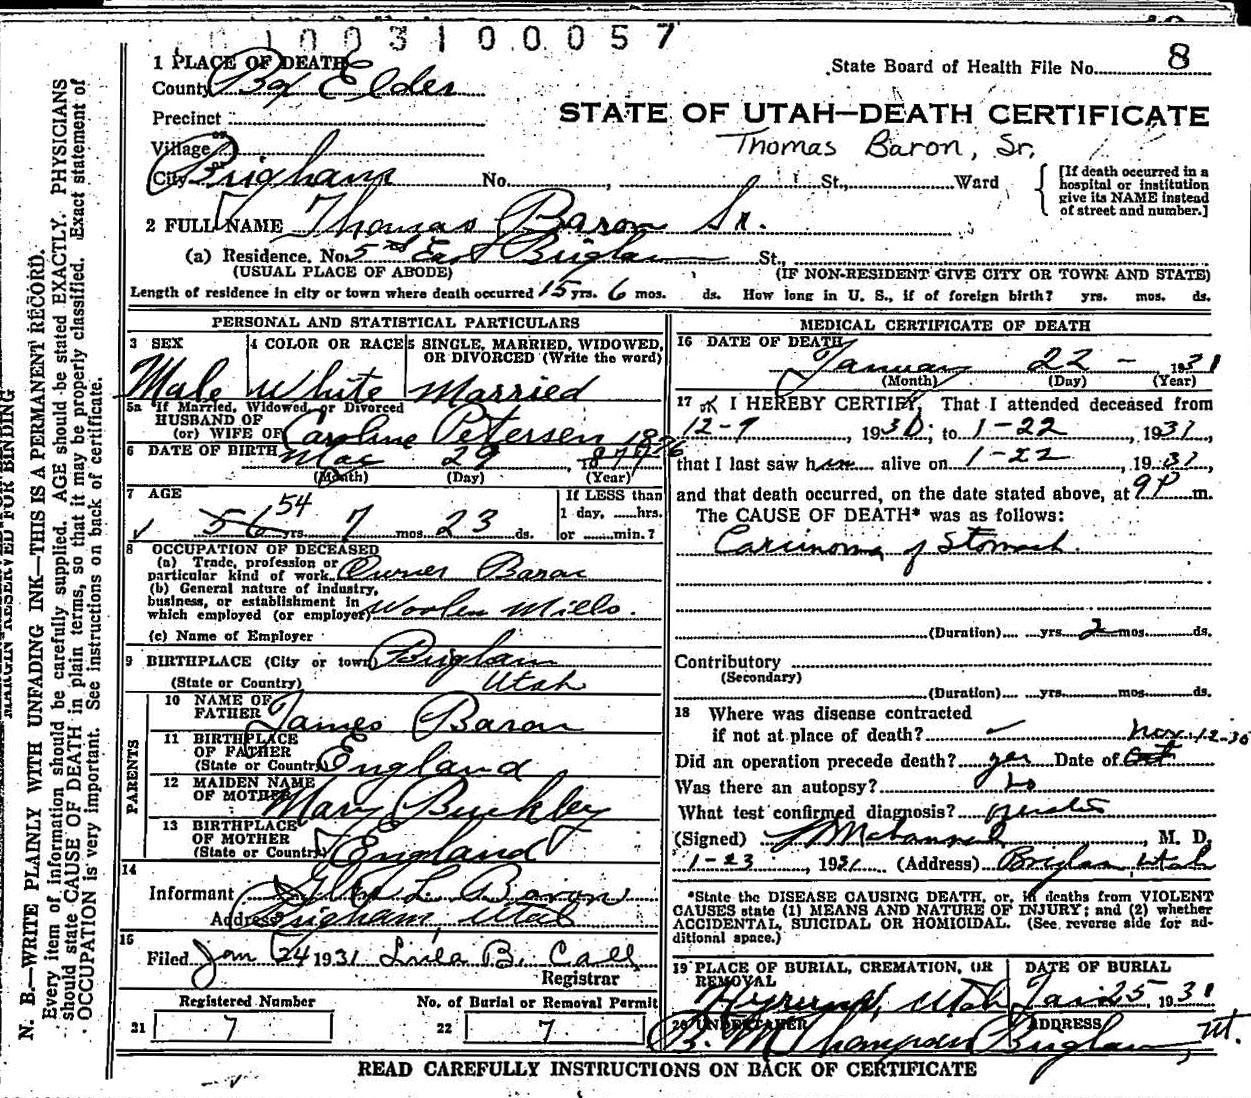 1003100057
1 PLACE OF DEATH
State Board of Health File No. 8
County Box Elder
STATE OF UTAH—DEATH CERTIFICATE
Precinct
Thomas Baron, Sr.
Village
or
City Brigham No. , St., Ward
[If death occurred in a hospital or institution give its NAME instead of street and number.]
2 FULL NAME Thomas Baron Sr.
(a) Residence. No. 5th East Brigham St.,
(USUAL PLACE OF ABODE) (IF NON-RESIDENT GIVE CITY OR TOWN AND STATE)
Length of residence in city or town where death occurred 15 yrs. 6 mos. ds. How long in U. S., if of foreign birth? yrs. mos. ds.
PERSONAL AND STATISTICAL PARTICULARS
3 SEX 4 COLOR OR RACE 5 SINGLE, MARRIED, WIDOWED, OR DIVORCED (Write the word)
Male White Married
5a If Married, Widowed, or Divorced
HUSBAND OF
(or) WIFE OF Caroline Petersen
1876
6 DATE OF BIRTH 29, 187
(Month) (Day) (Year)
7 AGE If LESS than
54 1 day, hrs.
56 yrs. 7 mos. 23 ds. or min.?
8 OCCUPATION OF DECEASED
(a) Trade, profession or
particular kind of work Owner Baron
(b) General nature of industry,
business, or establishment in
which employed (or employer) Woolen Mills.
(c) Name of Employer
9 BIRTHPLACE (City or town) Brigham
(State or Country) Utah
PARENTS
10 NAME OF FATHER James Baron
11 BIRTHPLACE OF FATHER
(State or Country) England
12 MAIDEN NAME OF MOTHER Mary Buckley
13 BIRTHPLACE OF MOTHER
(State or Country) England
14
Informant L. Baron
Address Brigham, Utah
15
Filed Jan 24 1931 Lula B. Call
Registrar
Registered Number No. of Burial or Removal Permit
21 7 22 7
MEDICAL CERTIFICATE OF DEATH
16 DATE OF DEATH
January 22 - 1931
(Month) (Day) (Year)
17 I HEREBY CERTIFY, That I attended deceased from
12-9, 1930, to 1-22, 1931,
that I last saw him alive on 1-22, 1931,
and that death occurred, on the date stated above, at 9 P m.
The CAUSE OF DEATH* was as follows:
Carcinoma of Stomach.
(Duration) yrs. 2 mos. ds.
Contributory
(Secondary)
(Duration) yrs. mos. ds.
18 Where was disease contracted
if not at place of death? Nov. 12-30
Did an operation precede death? yes Date of Oct
Was there an autopsy? no
What test confirmed diagnosis?
(Signed) , M. D.
1-23, 1931 (Address) Brigham, Utah
*State the DISEASE CAUSING DEATH, or, in deaths from VIOLENT
CAUSES state (1) MEANS AND NATURE OF INJURY; and (2) whether
ACCIDENTAL, SUICIDAL OR HOMICIDAL. (See reverse side for ad-
ditional space.)
19 PLACE OF BURIAL, CREMATION, OR REMOVAL DATE OF BURIAL
Hyrum, Utah Jan 25 1931
20 UNDERTAKER ADDRESS
B. M. Brigham, Ut.
READ CAREFULLY INSTRUCTIONS ON BACK OF CERTIFICATE
MARGIN RESERVED FOR BINDING
N. B.—WRITE PLAINLY WITH UNFADING INK—THIS IS A PERMANENT RECORD.
Every item of information should be carefully supplied. AGE should be stated EXACTLY. PHYSICIANS
should state CAUSE OF DEATH in plain terms, so that it may be properly classified. Exact statement of
OCCUPATION is very important. See instructions on back of certificate.